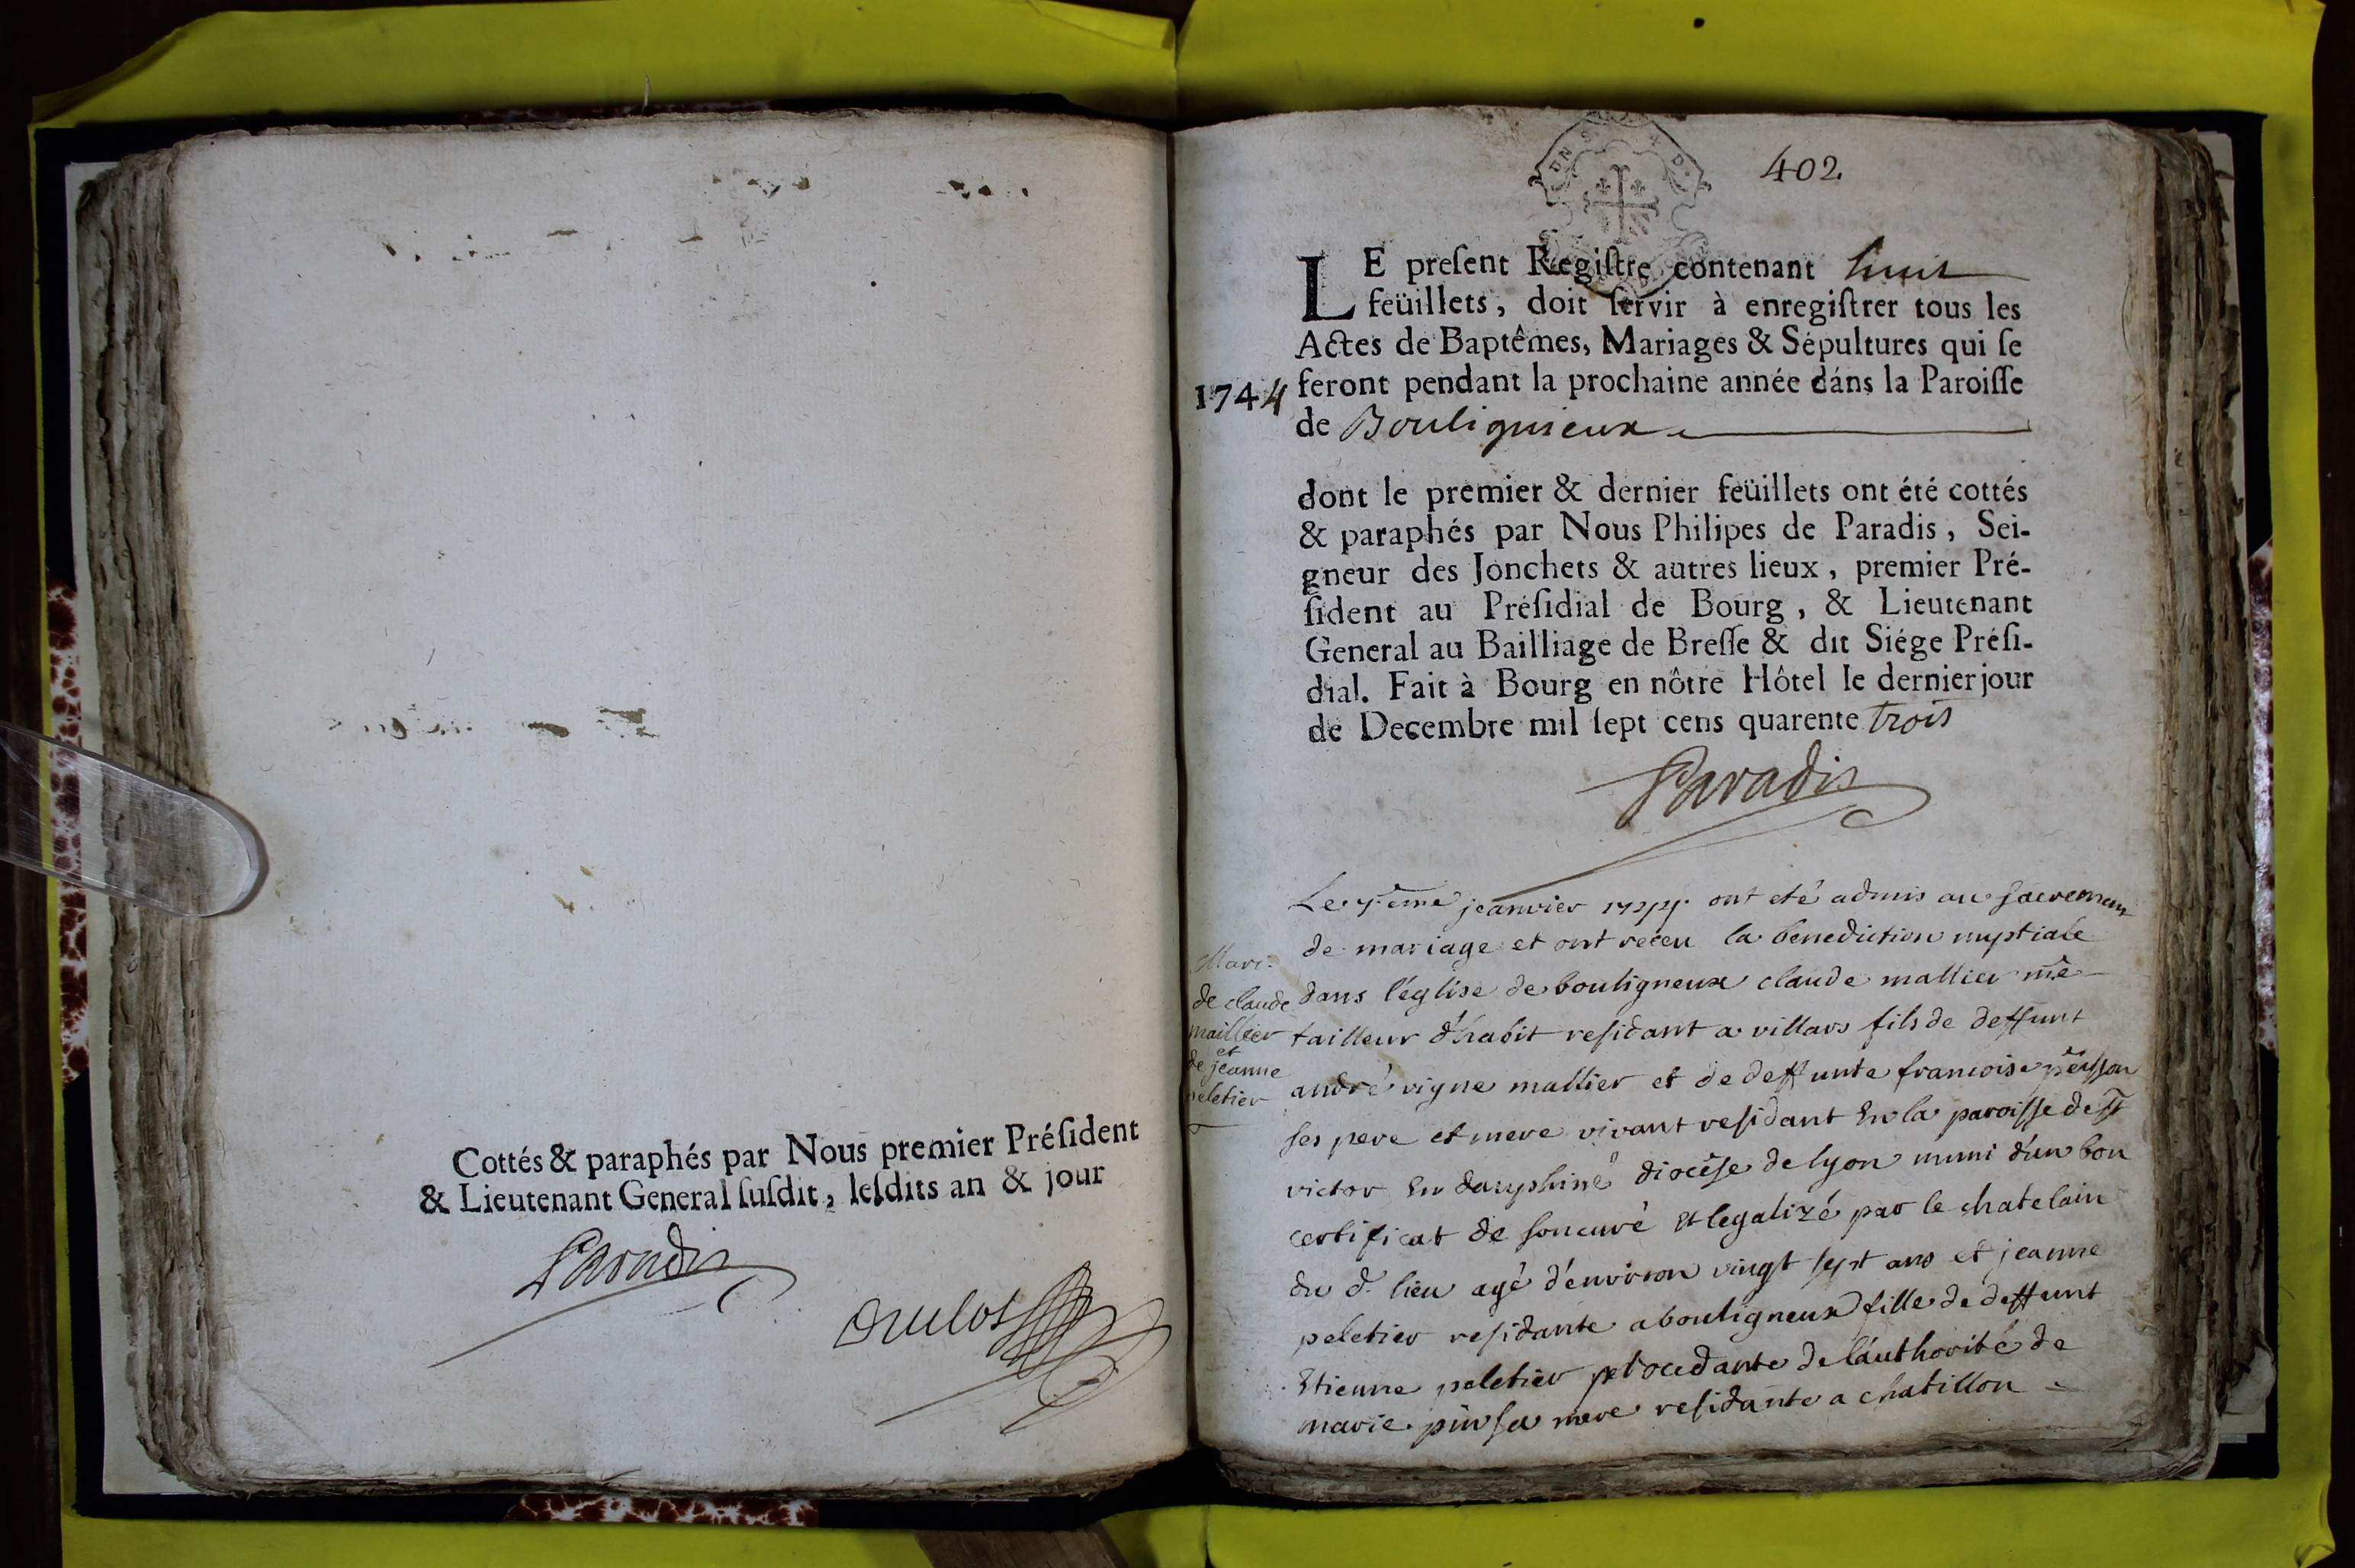 Cottés & paraphés par Nous premier Président
& Lieutenant General ſuſdit, leſdits an & jour
Paradis
402
LE preſent Regiſtre contenant huit
feüillets, doit ſervir à enregiſtrer tous les
Actes de Baptêmes, Mariages & Sépultures qui ſe
1744
feront pendant la prochaine année dáns la Paroiſſe
de Boulignieux
dont le premier & dernier feüillets ont été cottés
& paraphés par Nous Philipes de Paradis, Sei-
gneur des Jonchets & autres lieux, premier Pré-
ſident au Préſidial de Bourg, & Lieutenant
General au Bailliage de Breſſe & dit Siége Préſi-
dial. Fait à Bourg en nôtre Hôtel le dernier jour
de Decembre mil ſept cens quarente trois
Paradis
Mari.
de claude
maillier
et
de jeanne
peletier
Le jeanvier ont eté admis au sacrement
de mariage et ont receu la benediction nuptiale
dans l'église de bouligneux claude mallier me
tailleur d'habit residant a villars fils de deffunt
andré vigne mallier et de deffunte francoise
ses pere et mere vivant residant En la paroisse de st
victor En dauphiné diocèse de lyon muni d'un bon
certificat de son curé Et legalizé par le chatelain
du d. lieu agé d'environ vingt sept ans et jeanne
peletier residante a bouligneux fille de deffunt
Etienne peletier procedante de l'authorité de
marie pin sa mere residante a chatillon